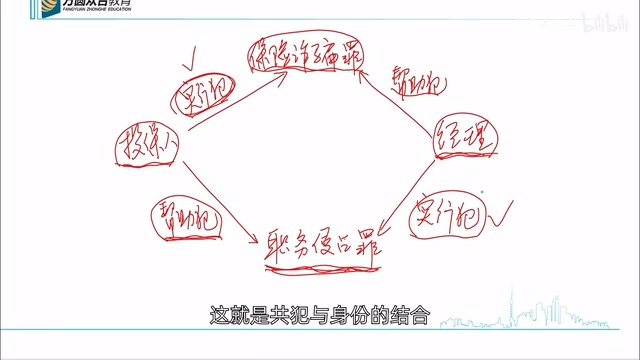 方圆众合教育
FANGYUAN ZHONGHE EDUCATION
bilibili
保险诈骗罪
实行犯
帮助犯
投保人
经理
帮助犯
实行犯
职务侵占罪
这就是共犯与身份的结合